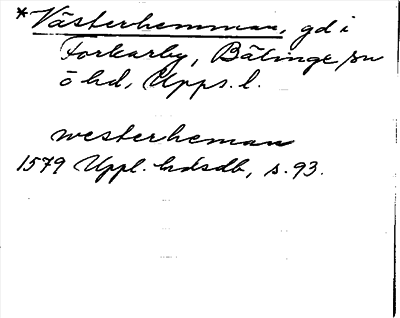 *Västerhemman, gd i
Forkarby, Bälinge sn
ö hd, Upps. l.
westerheman
1579 Uppl. hdsdb, s. 93.